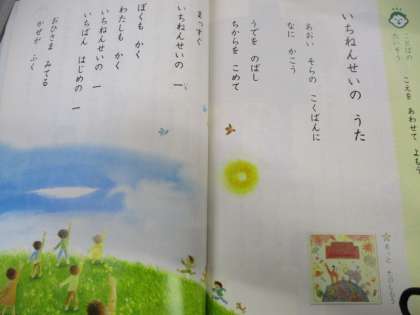 ことばの
たいそう
こえを あわせて よもう
いちねんせいの うた
あおい そらの こくばんに
なに かこう
うでを のばし
ちからを こめて
まっすぐ
いちねんせいの 一
ぼくも かく
わたしも かく
いちねんせいの 一
いちばん はじめの 一
おひさま みてる
かぜが ふく
もっと たのしもう